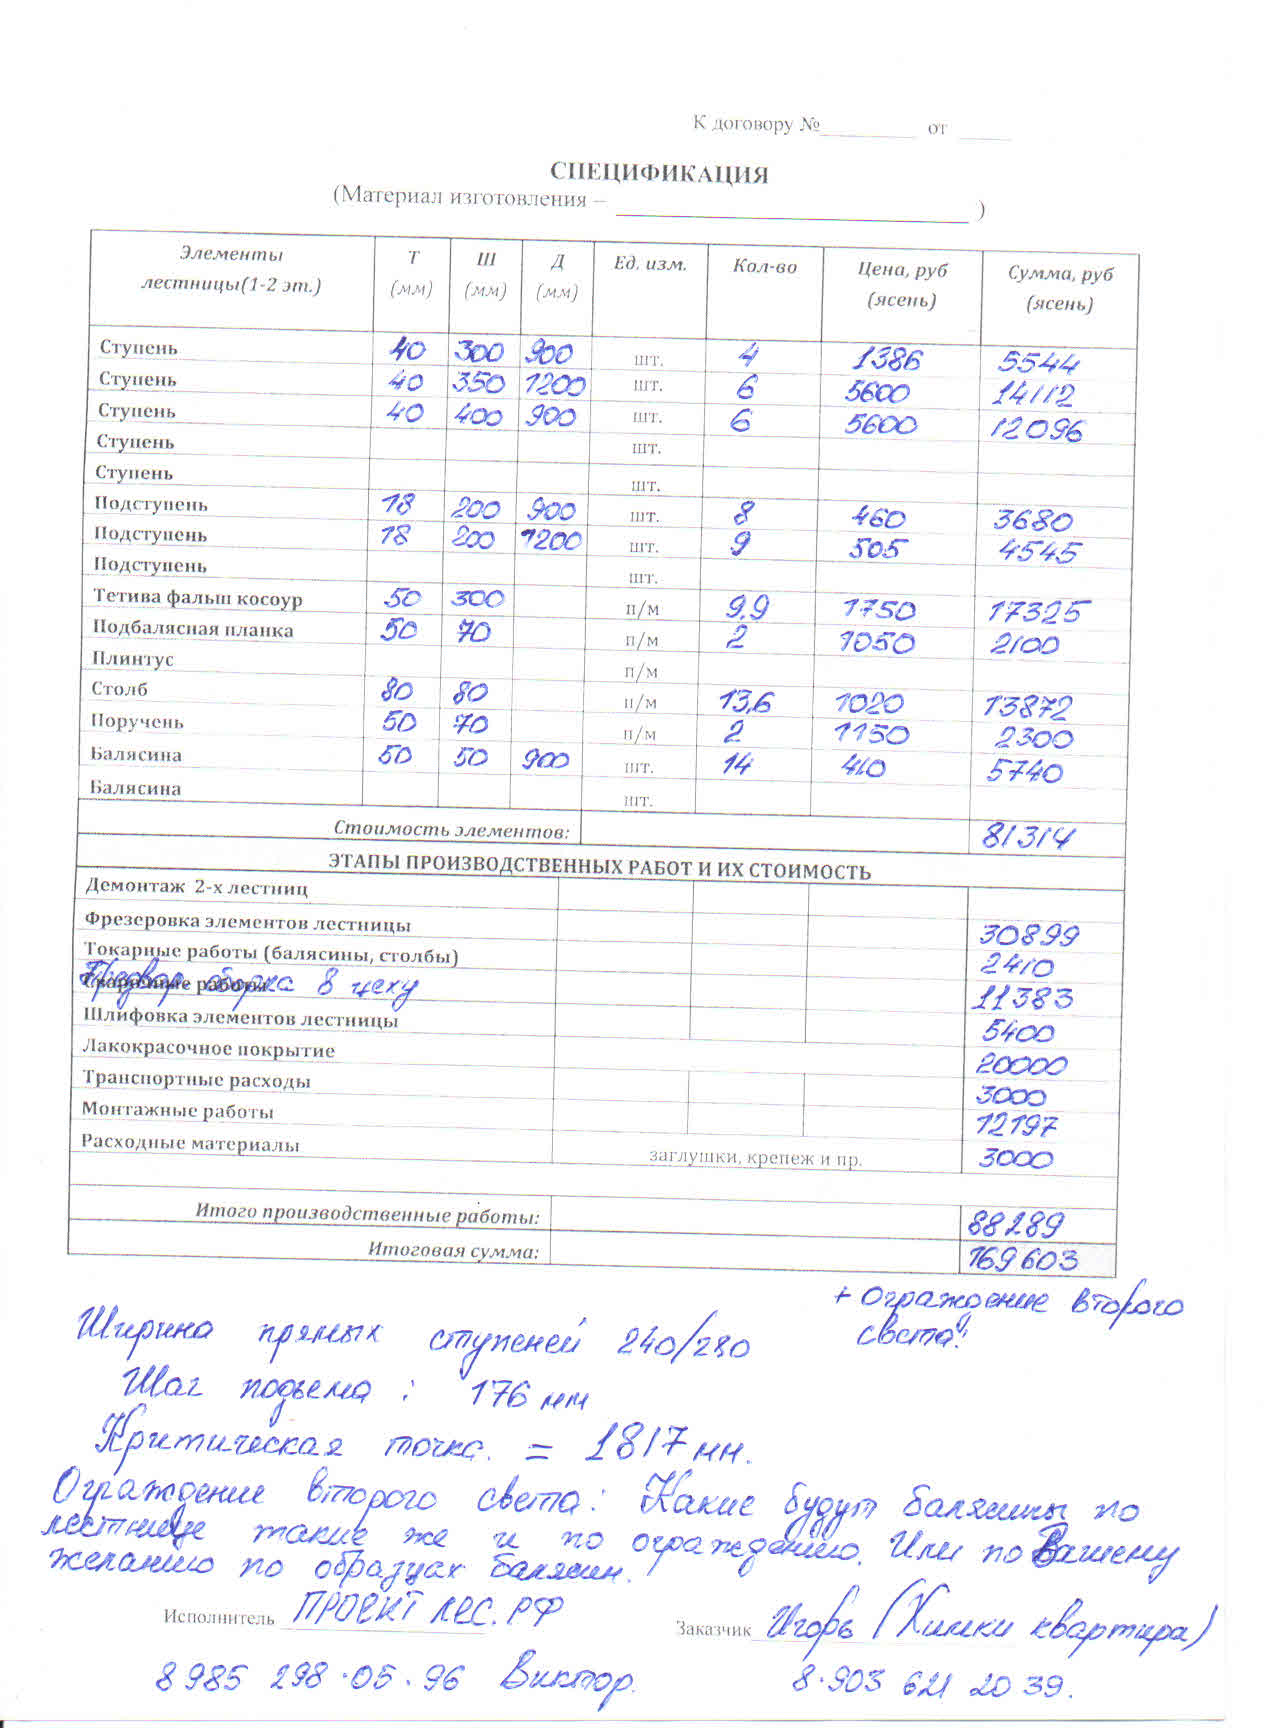 К договору №_________ от _____
СПЕЦИФИКАЦИЯ
(Материал изготовления – _________________ )
Элементы лестницы(1-2 эт.) Т (мм) Ш (мм) Д (мм) Ед. изм. Кол-во Цена, руб (ясень) Сумма, руб (ясень)
Ступень 40 300 900 шт. 4 1386 5544
Ступень 40 350 1200 шт. 6 5600 14112
Ступень 40 400 900 шт. 6 5600 12096
Ступень шт.
Ступень шт.
Подступень 18 200 900 шт. 8 460 3680
Подступень 18 200 1200 шт. 9 505 4545
Подступень шт.
Тетива фальш косоур 50 300 п/м 9,9 1750 17325
Подбалясная планка 50 70 п/м 2 1050 2100
Плинтус п/м
Столб 80 80 п/м 13,6 1020 13872
Поручень 50 70 п/м 2 1150 2300
Балясина 50 50 900 шт. 14 410 5740
Балясина шт.
Стоимость элементов: 81314
ЭТАПЫ ПРОИЗВОДСТВЕННЫХ РАБОТ И ИХ СТОИМОСТЬ
Демонтаж 2-х лестниц
Фрезеровка элементов лестницы 30899
Токарные работы (балясины, столбы) 2410
Предвар сборка в цеху 11383
Шлифовка элементов лестницы 5400
Лакокрасочное покрытие 20000
Транспортные расходы 3000
Монтажные работы 12197
Расходные материалы заглушки, крепеж и пр. 3000
Итого производственные работы: 88289
Итоговая сумма: 169603
+ ограждение второго
света!
Ширина прямых ступеней 240/280
Шаг подъема : 176 мм
Критическая точка. = 1817 мм.
Ограждение второго света: Какие будут балясины по
лестнице такие же и по ограждению. Или по Вашему
желанию по образцах балясин.
Исполнитель ПРОЕКТ ЛЕС.РФ Заказчик Игорь (Химки квартира)
8 985 298·05·96 Виктор. 8·903 621 20 39.